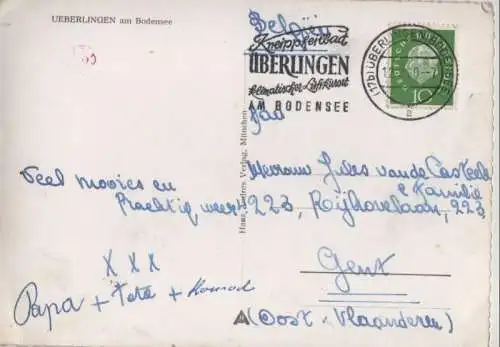 UEBERLINGEN am Bodensee
België
Kneippheilbad
ÜBERLINGEN
klimatischer Luftkurort
AM BODENSEE
(17b) ÜBERLINGEN
10
Hans Andres Verlag, München
Veel moois en
Prachtig weer!
X X X
Papa + Tate + Konrad
Mevrouw Jules van de Casteele
& Familie
223, Rijhovelaan, 223
Gent
(Oost - Vlaanderen)